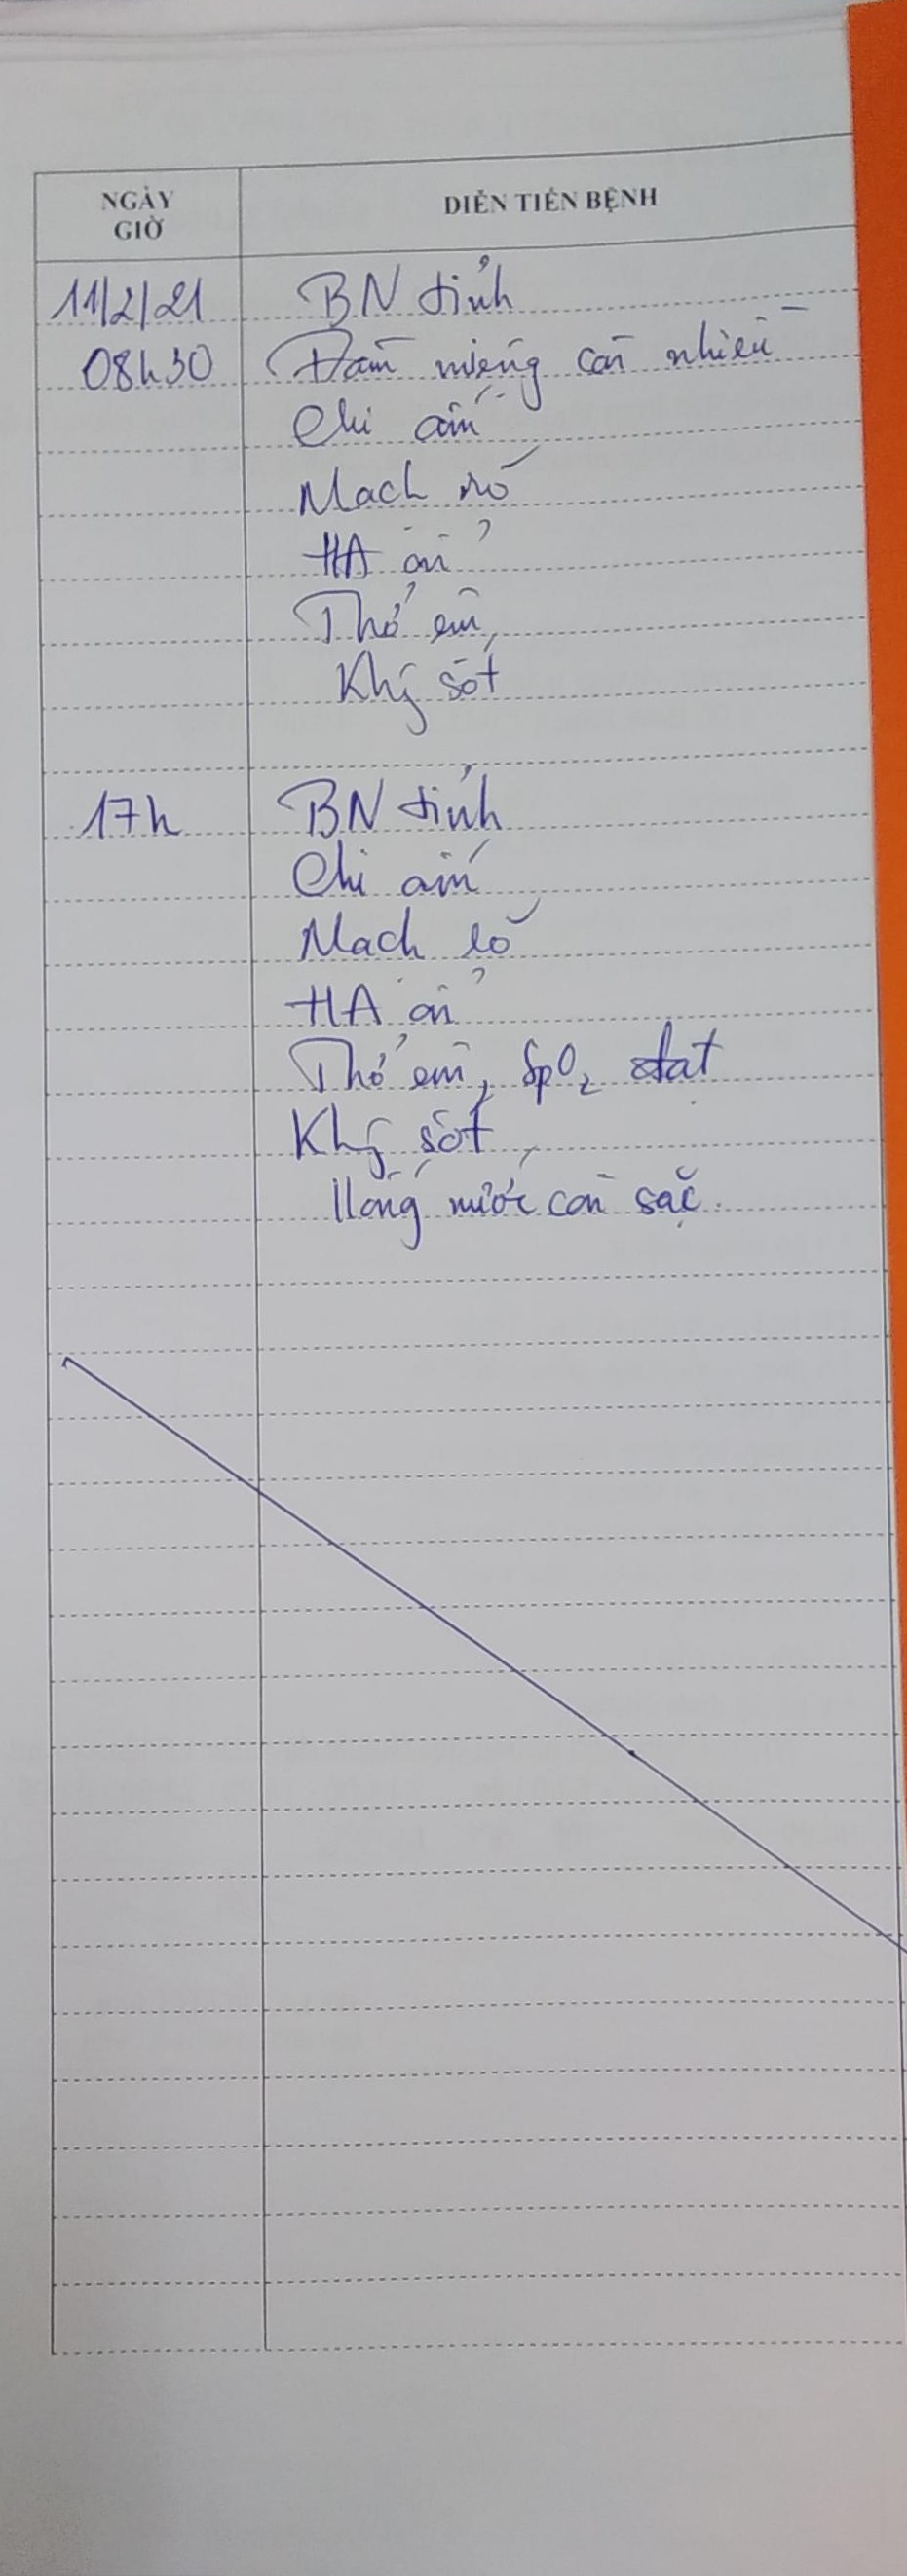 NGÀY
GIỜ
DIỄN TIẾN BỆNH
11/2/21 BN tỉnh
08h30 Đàm miệng còn nhiều
Chi ấm
Mạch rõ
HA ổn
Thở êm,
Khg sốt
17h BN tỉnh
Chi ấm
Mạch rõ
HA ổn
Thở êm, SpO2 đạt
Khg sốt,
Uống nước còn sặc.